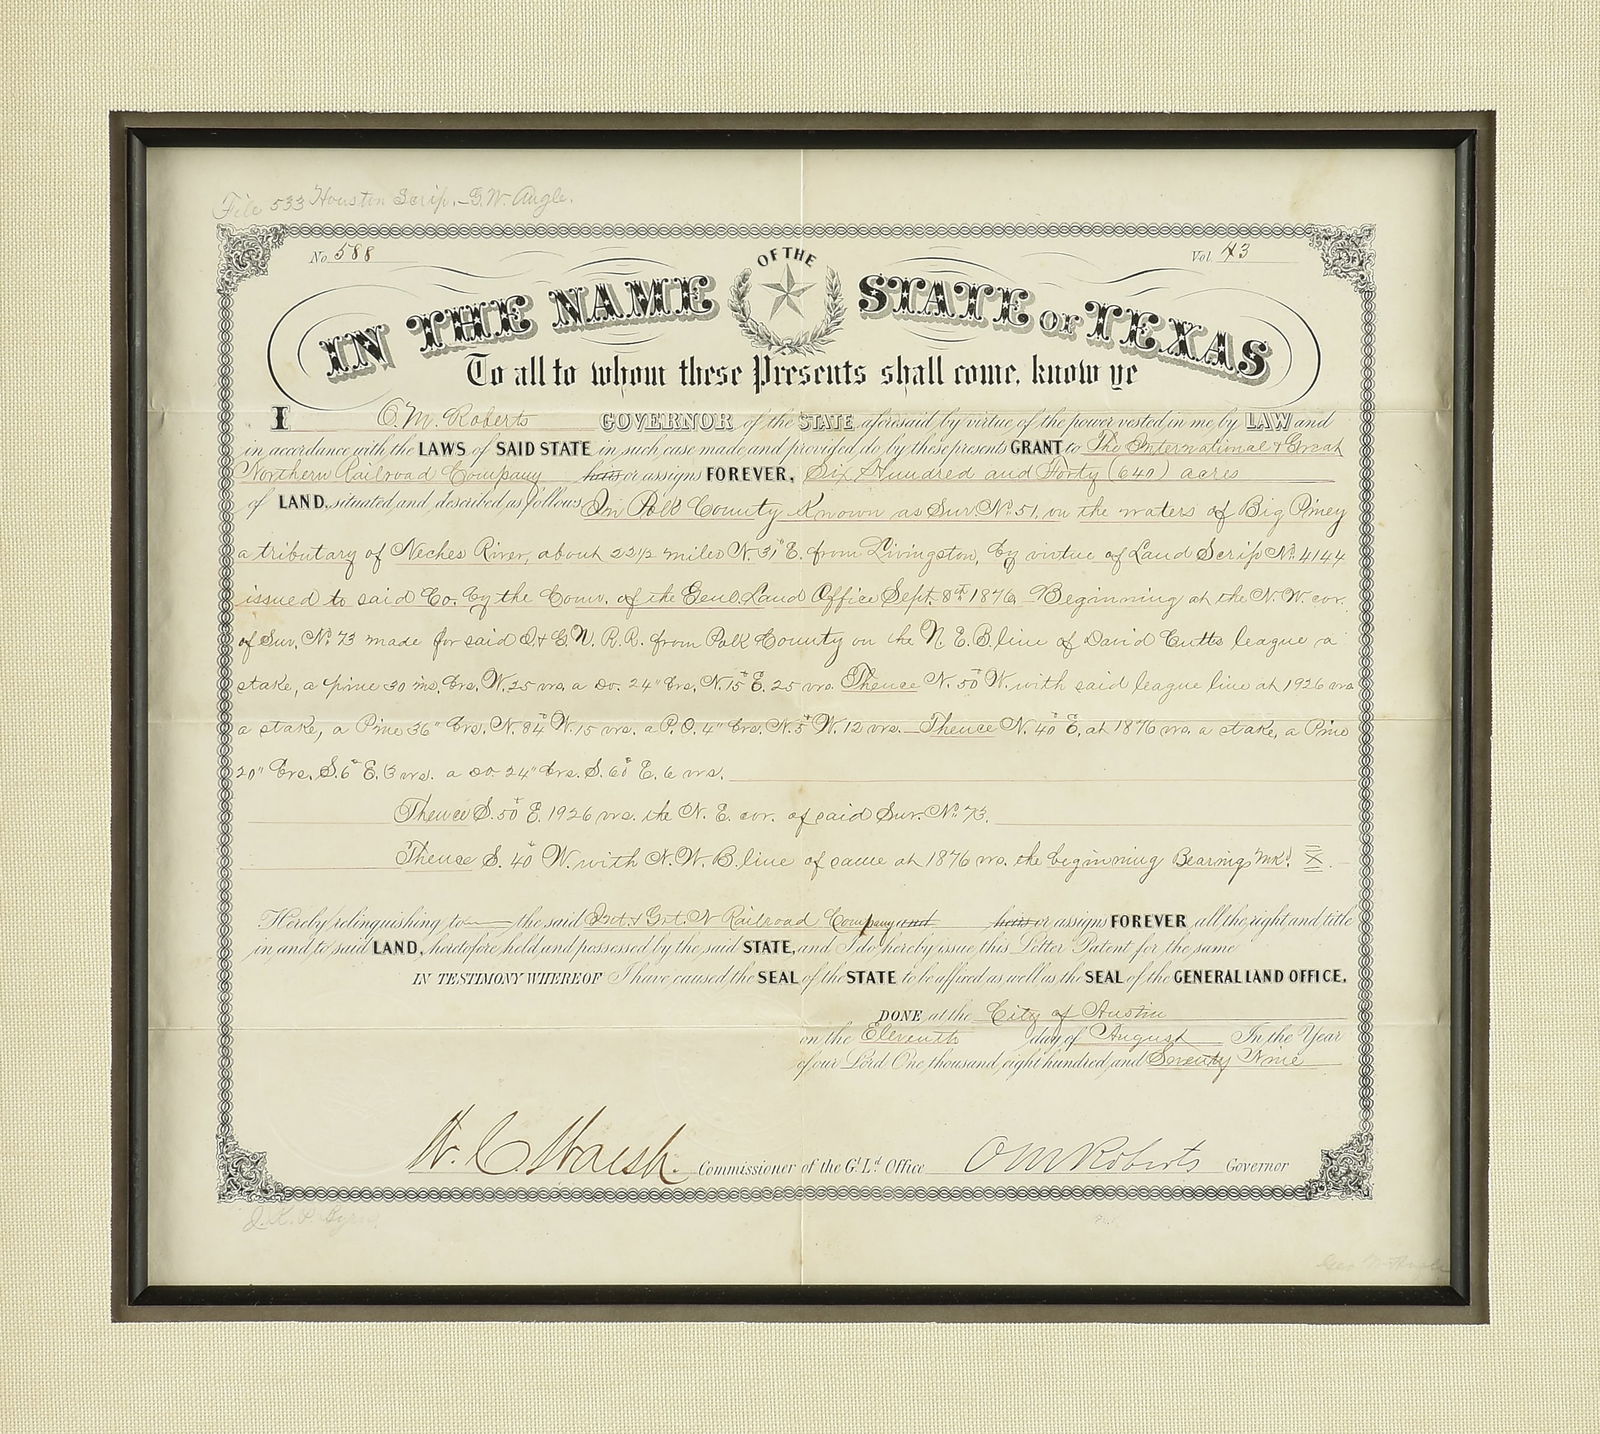 File 533 Houston Scrip. G. W. Angle.
No. 588 Vol. 43
IN THE NAME OF THE STATE OF TEXAS
To all to whom these Presents shall come, know ye
I O. M. Roberts GOVERNOR of the STATE aforesaid by virtue of the power vested in me by LAW and
in accordance with the LAWS of SAID STATE in such case made and provided, do by these presents GRANT to The International & Great
Northern Railroad Company heirs or assigns FOREVER, Six Hundred and Forty (640) acres
of LAND, situated and described as follows In Polk County Known as Sur. No. 51, on the waters of Big Piney
a tributary of Neches River, about 22 1/2 miles N. 31° E. from Livingston, by virtue of Land Scrip No. 4144
issued to said Co. by the Comr. of the Genl. Land Office Sept. 8th 1876 Beginning at the N. W. cor.
of Sur. No. 73 made for said I. & G. N. R. R. from Polk County on the N. E. B. line of David Cutts league a
stake, a pine 30 ins. brs. W. 25 vrs. a do. 24" brs. N. 15° E. 25 vrs. Thence N. 50° W. with said league line at 1926 vrs
a stake, a Pine 36" brs. N. 84° W. 15 vrs. a P. O. 4" brs. N. 5° W. 12 vrs. Thence N. 40° E. at 1876 vrs. a stake, a Pine
20" brs. S. 6° E. 3 vrs. a do. 24" brs. S. 60° E. 6 vrs.
Thence S. 50° E. 1926 vrs. the N. E. cor. of said Sur. No. 73.
Thence S. 40° W. with N. W. B. line of same at 1876 vrs. the beginning Bearings mkd. X
Hereby relinquishing to the said Int. & Grt. N Railroad Company and heirs or assigns FOREVER, all the right and title
in and to said LAND, heretofore held and possessed by the said STATE, and I do hereby issue this Letter Patent for the same
IN TESTIMONY WHEREOF I have caused the SEAL of the STATE to be affixed as well as the SEAL of the GENERAL LAND OFFICE.
DONE at the City of Austin
on the Eleventh day of August In the Year
of our Lord One thousand eight hundred and Seventy Nine
W. C. Walsh. Commissioner of the Gl. Ld. Office O M Roberts Governor
J. K. P. Byrne